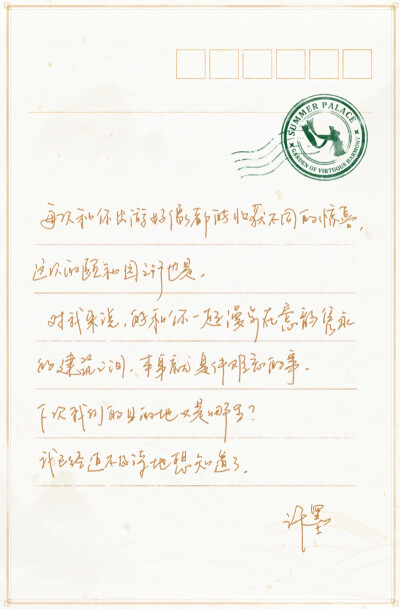 SUMMER PALACE
GARDEN OF VIRTUOUS HARMONY
每次和你出游好像都能收获不同的惊喜,
这次的颐和园之行也是。
对我来说,能和你一起漫步在意韵隽永
的建筑之间,本身就是件难忘的事。
下次我们的目的地又是哪里?
我已经迫不及待地想知道了。
许墨